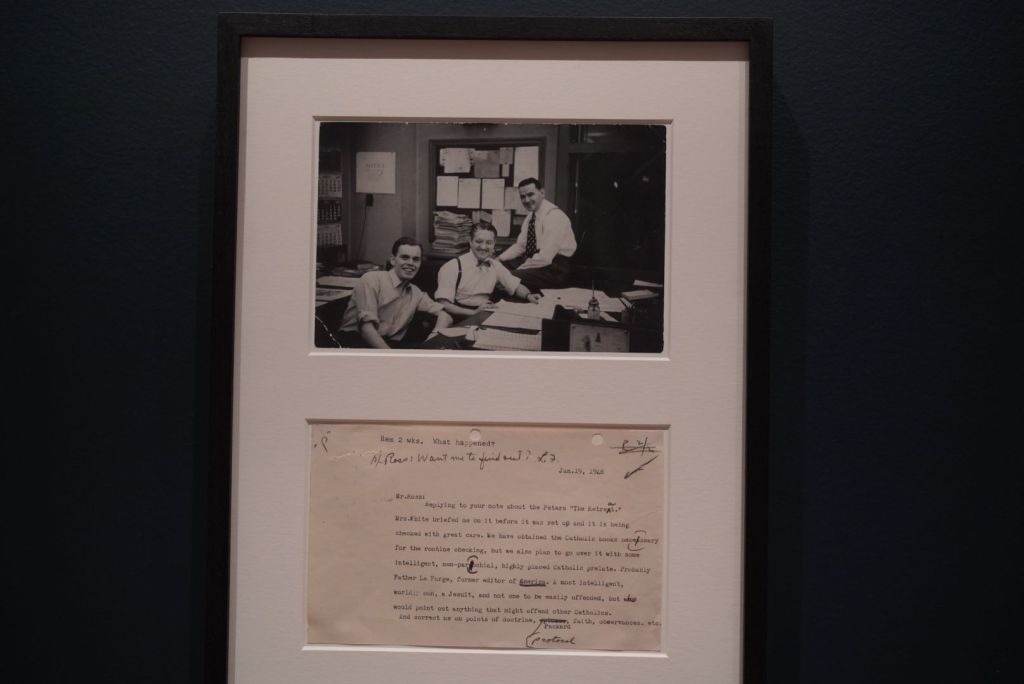 Rem 2 wks. What happened?
Mr. Ross: Want me to find out? L.F.
Jan.19, 1948
Mr.Ross:
Replying to your note about the Peters "The Retreat."
Mrs.White briefed me on it before it was set up and it is being
checked with great care. We have obtained the Catholic books necessary
for the routine checking, but we also plan to go over it with some
intelligent, non-parochial, highly placed Catholic prelate. Probably
Father La Farge, former editor of America. A most intelligent,
worldly man, a Jesuit, and not one to be easily offended, but who
would point out anything that might offend other Catholics.
And correct us on points of doctrine, faith, observances. etc.
Packard
protocol